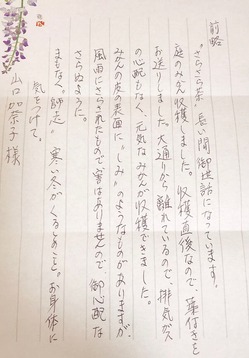 前略
さらさら茶、長い間御世話になっています。
庭のみかん収穫しました。収穫直後なので、葉付きを
お送りしました。大通りから離れているので、排気ガス
の心配もなく、元気なみかんが収穫できました。
みかんの皮の表面に"しみ"のようなものがありますが、
風雨にさらされたもので害はありませんので、御心配な
さらぬように。
まもなく"師走"寒い冬がくるとのこと。お身体に
気をつけて。
山口加奈子様